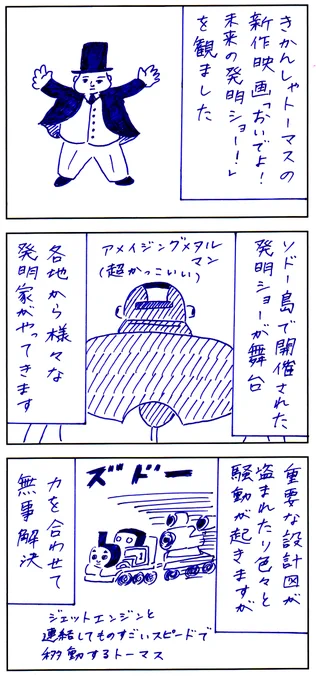 きかんしゃトーマスの
新作映画「おいでよ!
未来の発明ショー!」
を観ました
ソドー島で開催された
発明ショーが舞台
アメイジングメタル
マン
(超かっこいい)
各地から様々な
発明家がやってきます
重要な設計図が
盗まれたり色々と
騒動が起きますが
ズドー
力を合わせて
無事解決
ジェットエンジンと
連結してものすごいスピードで
移動するトーマス